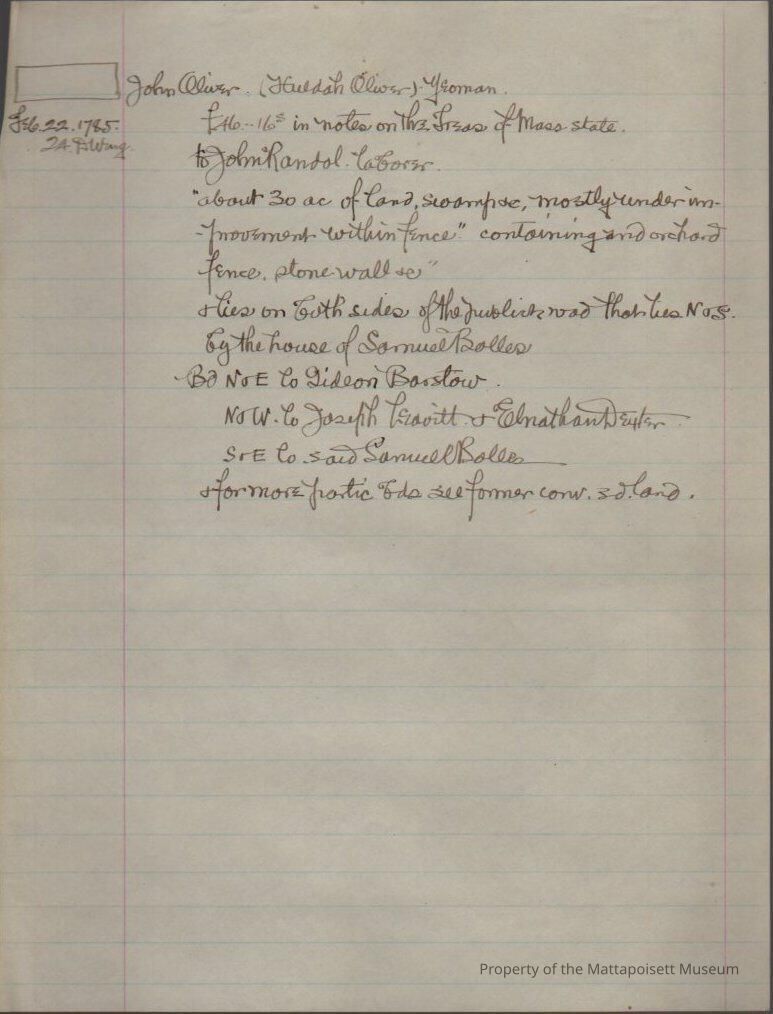 John Oliver. (Huldah Oliver) Yeoman.
Feb. 22. 1785.
£46--16s in notes on the Treas of Mass state.
to John Randol. laborer.
"about 30 ac of land, swamp &c, mostly under im-
-provement within fence" containing and orchard
fence, stone wall &c"
& lies on both sides of the publick road that lies N & S.
by the house of Samuel Bolles
Bd N & E to Gideon Barstow.
N & W. to Joseph Leavitt & Elnathan Dexter.
S & E to said Samuel Bolles
& for more partic bds see former conv. sd. land.
Property of the Mattapoisett Museum